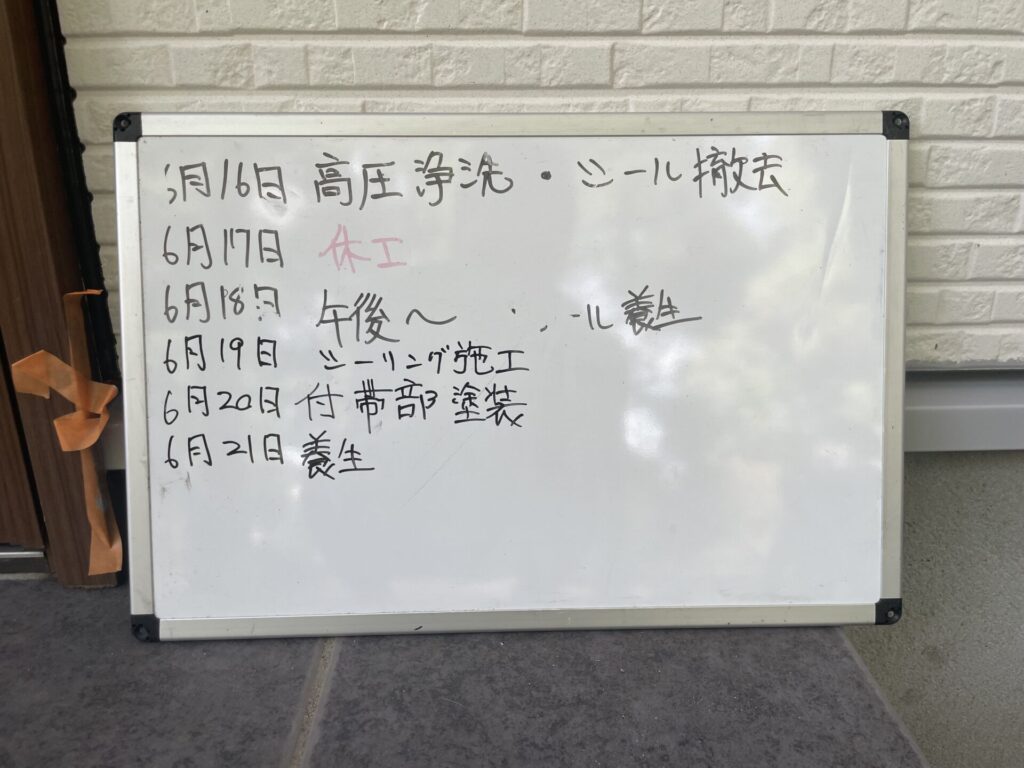 月16日 高圧浄洗・シール撤去
6月17日 休工
6月18日 午後〜 ール養生
6月19日 シーリング施工
6月20日 付帯部塗装
6月21日 養生